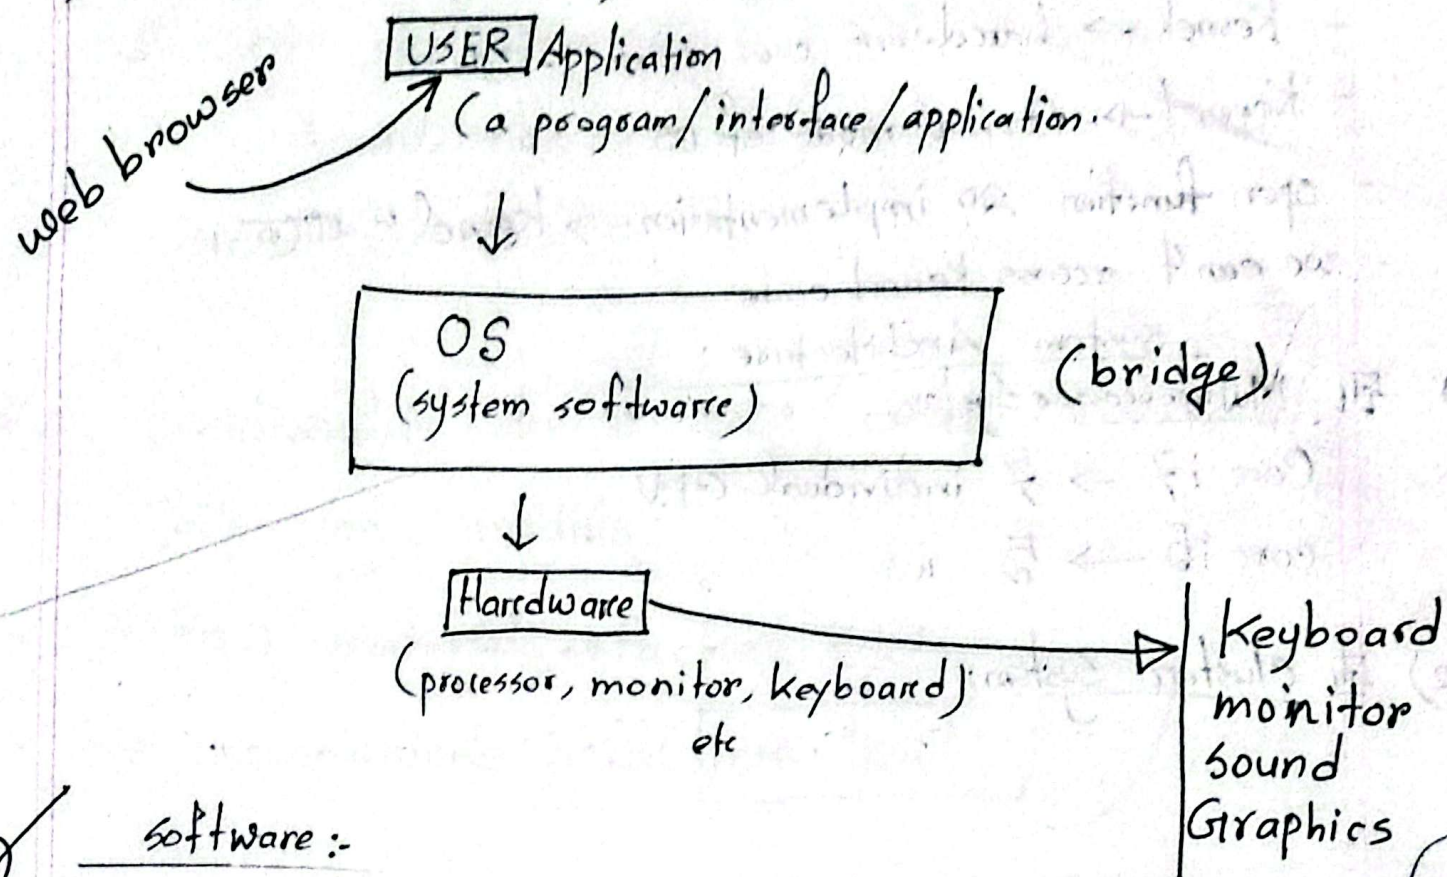 USER Application
(a program/interface/application.
web browser
OS
(system software)
(bridge).
Hardware
(processor, monitor, keyboard)
etc
Keyboard
monitor
sound
Graphics
software :-